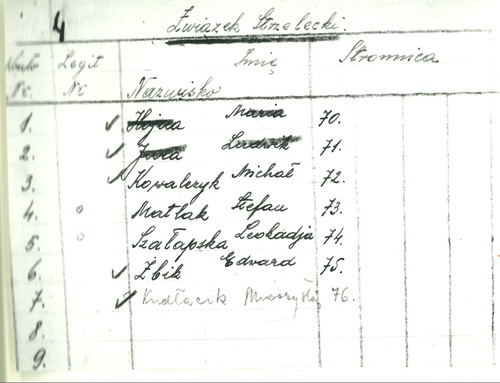 4 Związek Strzelecki.
Konto Legit Imię Stronnica
Nr. Nr Nazwisko
1. Maria 70.
2. Ludwik 71.
3. Kowalczyk Michał 72.
4. Matlak Stefan 73.
5. Szałapska Leokadja 74.
6. Żbik Edward 75.
7. Kudłacik 76.
8.
9.